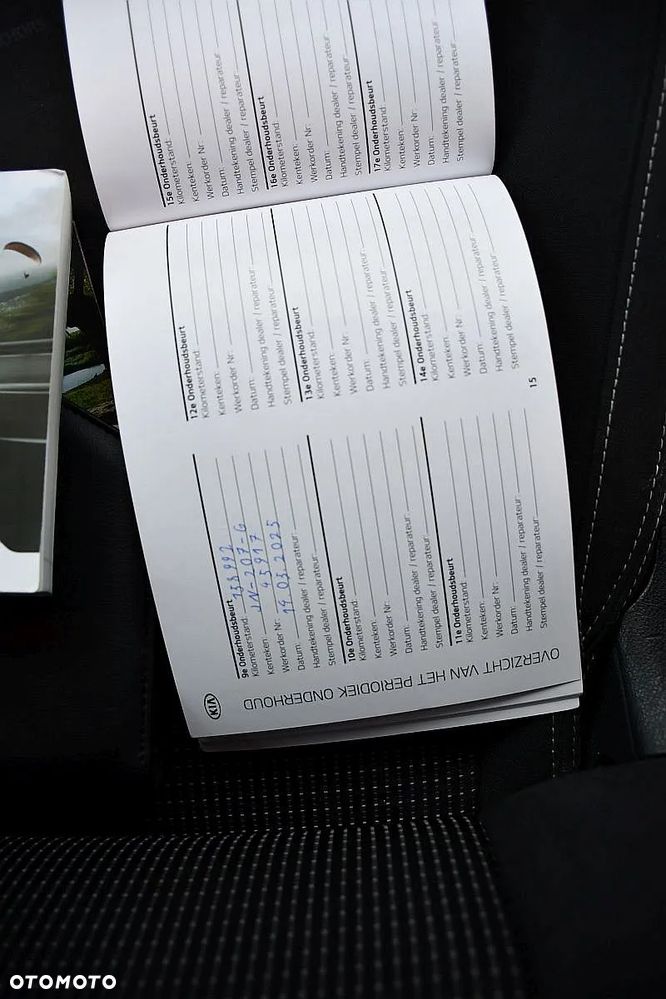 KIA
OVERZICHT VAN HET PERIODIEK ONDERHOUD
9e Onderhoudsbeurt
Kilometerstand: 153992
Kenteken: JN-207-G
Werkorder Nr.: 45917
Datum: 14.03.2025
Handtekening dealer / reparateur:
Stempel dealer / reparateur:
10e Onderhoudsbeurt
Kilometerstand:
Kenteken:
Werkorder Nr.:
Datum:
Handtekening dealer / reparateur:
Stempel dealer / reparateur:
11e Onderhoudsbeurt
Kilometerstand:
Kenteken:
Werkorder Nr.:
Datum:
Handtekening dealer / reparateur:
Stempel dealer / reparateur:
12e Onderhoudsbeurt
Kilometerstand:
Kenteken:
Werkorder Nr.:
Datum:
Handtekening dealer / reparateur:
Stempel dealer / reparateur:
13e Onderhoudsbeurt
Kilometerstand:
Kenteken:
Werkorder Nr.:
Datum:
Handtekening dealer / reparateur:
Stempel dealer / reparateur:
14e Onderhoudsbeurt
Kilometerstand:
Kenteken:
Werkorder Nr.:
Datum:
Handtekening dealer / reparateur:
Stempel dealer / reparateur:
15
15e Onderhoudsbeurt
Kilometerstand:
Kenteken:
Werkorder Nr.:
Datum:
Handtekening dealer / reparateur:
Stempel dealer / reparateur:
16e Onderhoudsbeurt
Kilometerstand:
Kenteken:
Werkorder Nr.:
Datum:
Handtekening dealer / reparateur:
Stempel dealer / reparateur:
17e Onderhoudsbeurt
Kilometerstand:
Kenteken:
Werkorder Nr.:
Datum:
Handtekening dealer / reparateur:
Stempel dealer / reparateur:
OTOMOTO